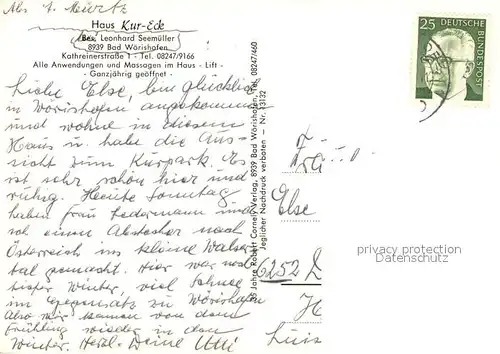 Abs. A. Muntz
Haus Kur-Eck
Bes. Leonhard Seemüller
8939 Bad Wörishofen
Kathreinerstraße 1 - Tel. 08247/9166
Alle Anwendungen und Massagen im Haus - Lift -
- Ganzjährig geöffnet -
Liebe Else, bin glücklich
in Wörishofen angekommen
und wohne in diesem
Haus u. habe die Aus-
sicht zum Kurpark. Es
ist sehr schön hier und
ruhig. Heute Sonntag
haben Frau Ledermann und
ich einen Abstecher nach
Österreich ins kleine Walser-
tal gemacht. Hier war noch
tiefer Winter, viel Schnee
im Gegensatz zu Wörishofen
Also wir kamen von dem
Frühling wieder in den
Winter. Herzl. Deine Utti
25 Jahre Robert Cornely Verlag, 8939 Bad Wörishofen, Tel. 08247/460
Jeglicher Nachdruck verboten - Nr. 13132
25 DEUTSCHE
BUNDESPOST
Frau
Else
privacy protection
Delcampe
6252 D
H
Luis